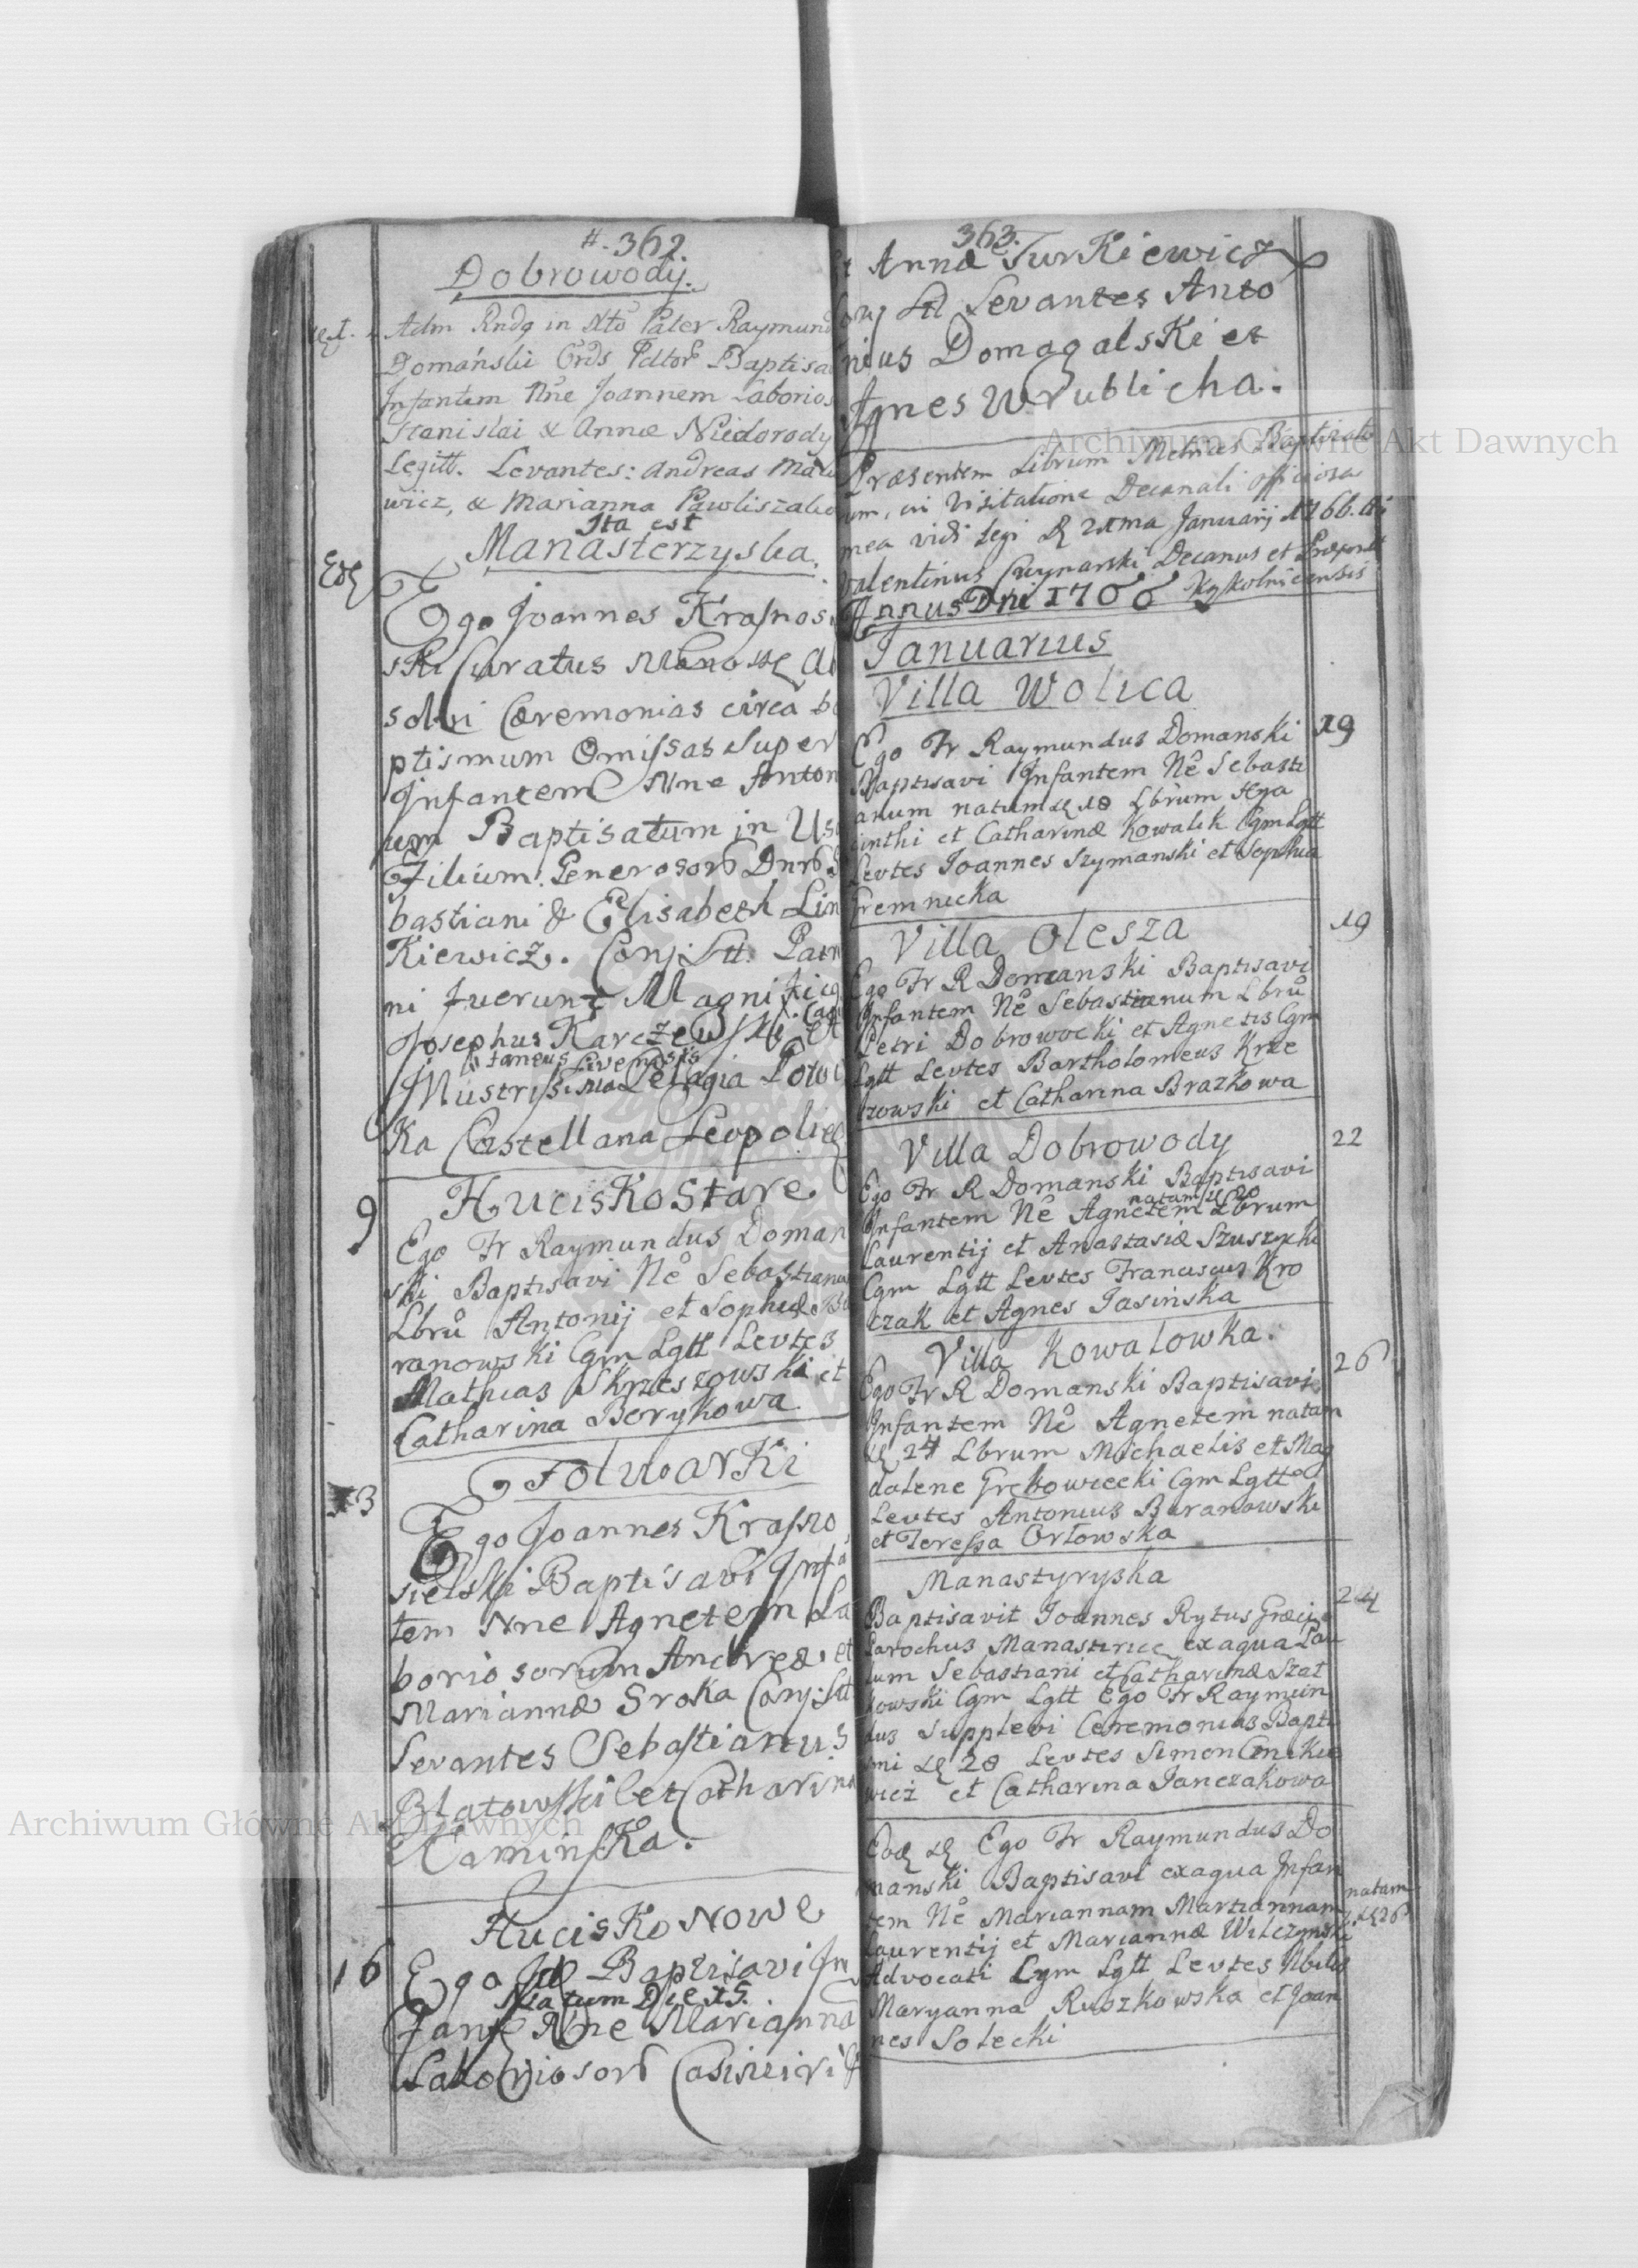 #. 362.
Dobrowody.
Adm Rndq in Xto Pater Raymund
Domański Ords Pdtor Baptisa
Infantem Nne Joannem Laborios
Stanislai & Annæ Niedorody
Legitt. Levantes: Andreas
wicz, & Marianna Pawliszako
Ita est
Manasterzyska.
Ego Joannes Krasnos
ski Curatus
solvi Cæremonias circa ba
ptismum Omissas super
Infantem Nne Anton
ium Baptisatum in
Filium. Generosorb Dnrb
bastiani & Elisabeth Lin
Kiewicz. Conj: Ltt. Patri
ni fuerunt Magnificq
Josephus Karczewski et
taneus
Illustrissima Pelagia Potoc
Ka Castellana Leopolien
Hucisko Stare.
9
Ego Fr Raymundus Doman
ski Baptisavi Ne Sebastianu
Lbrū Antonij et Sophiæ Ba
ranowski Cgm Lgtt Levtes
Mathias Skrzeszowski et
Catharina Borykowa
Folwarki
13
Ego Joannes Krasno
sielski Baptisavi Infa
tem Nne Agnetem La
boriosorum Andreæ et
Mariannæ Sroka Conj: Ltt
Levantes Sebastianus
Blatowski et Catharina
KaminsKa.
Hucisko Nowe
16
Ego Id Baptisavi In
Natum Die 15.
fant Nne Marianna
Laboriosorb Casimiri &
363.
et Annæ TurKiewicz
conj Ltt Levantes Anto
nius DomagalsKi et
Agnes Wrublicha.
Præsentem Librum Metrices Baptisato
rum, in Visitatione Decanali officiosa
mea vidi legi d 21ma Januarij 1766. Ai
Valentinus Decanus et Præpositus
Kąkolnicensis
Annus Dni 1766
Januarius
Villa Wolica
19
Ego Fr Raymundus Domanski
Baptisavi Infantem Ne Sebasti
anum natum d 18 Lbrum Hya
cinthi et Catharinæ Kowalik Cgm Lgtt
Levtes Joannes Szymanski et Sophia
Gremnicka
Villa Olesza
19
Ego Fr R Domanski Baptisavi
Infantem Ne Sebastianum Lbrū
Petri Dobrowocki et Agnetis Cgm
Lgtt Levtes Bartholomeus Krze
czowski et Catharina Brazkowa
Villa Dobrowody
22
Ego Fr R Domanski Baptisavi
natam d 20
Infantem Ne Agnetem Lbrum
Laurentij et Anastasiæ Szuszycki
Cgm Lgtt Levtes Franciscus Kro
czak et Agnes Jasińska
Villa Kowalowka.
26
Ego Fr R Domanski Baptisavi
Infantem Ne Agnetem natam
d 24 Lbrum Michaelis et Mag
dalene Grębowiecki Cgm Lgtt
Levtes Antonius Baranowski
et Teressa Orłowska
Manastyryska
24
Baptisavit Joannes Rytus Græci
Parochus Manastiricę ex aqua Pau
lum Sebastiani et Catharinæ Szat
kowski Cgm Lgtt Ego Fr Raymun
dus supplevi Ceremonias Bapti
smi d 28 Levtes Simon
wicz et Catharina Janczakowa
Eod d Ego Fr Raymundus Do
manski Baptisavi ex aqua Infan
tem Ne Mariannam Martiannam
natam
d 26
Laurentij et Mariannæ Wilczynski
Advocati Cgm Lgtt Levtes Nbilis
Maryanna Ruszkowska et Joan
nes Solecki
Archiwum Główne Akt Dawnych
Archiwum Główne Akt Dawnych